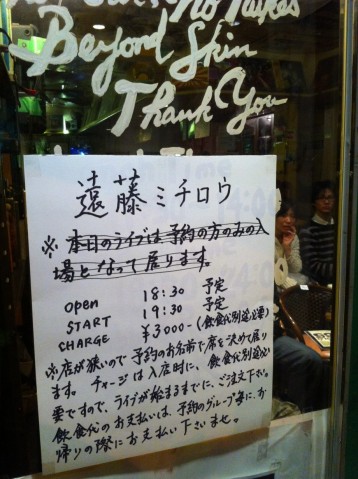 No Talkes
Beyond Skin
Thank You
遠藤ミチロウ
※本日のライブは予約の方のみの入
場となって居ります。
open 18:30 予定
START 19:30 予定
CHARGE ¥3000-(飲食代別途必要)
※店が狭いので予約のお名前で席を決めて居り
ます。チャージは入店時に、飲食代別途必
要ですので、ライブが始まるまでに、ご注文下さい。
飲食代のお支払いは、予約のグループ毎に、お
帰りの際にお支払い下さいませ。